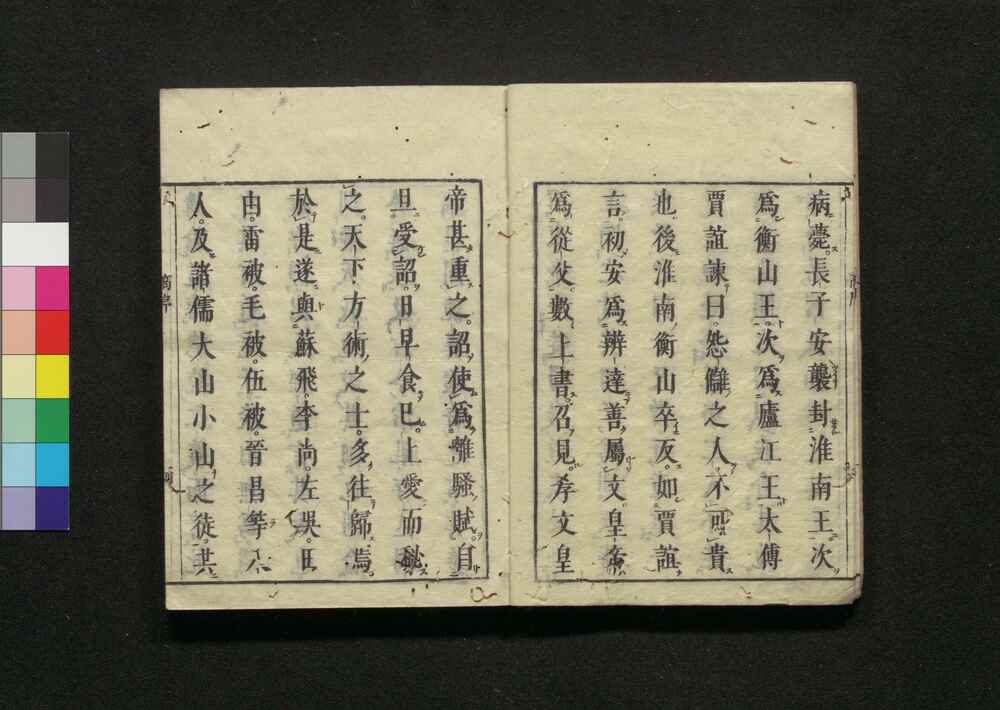 病薨長子安襲封淮南王次
爲衡山王次爲廬江王太傅
賈誼諫曰怨讎之人不可貴
也後淮南衡山卒反如賈誼
言初安爲辨達善屬文皇帝
爲從父數上書召見孝文皇
帝甚重之詔使爲離騷賦自
旦受詔日早食已上愛而秘
之天下方術之士多往歸焉
於是遂與蘇飛李尚左吳田
由雷被毛被伍被晉昌等八
人及諸儒大山小山之徒共